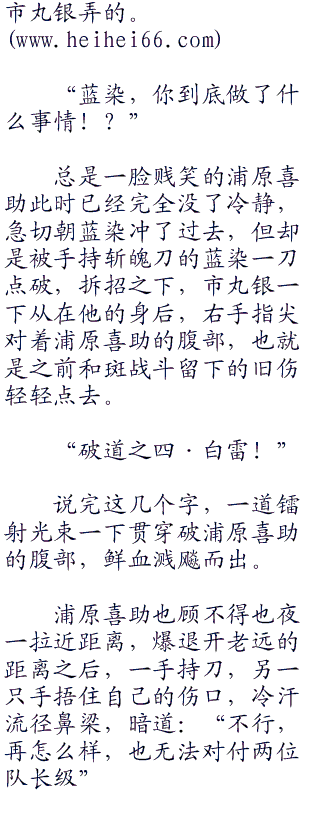 市丸银弄的。
(www.heihei66.com)
“蓝染，你到底做了什
么事情！？”
总是一脸贱笑的浦原喜
助此时已经完全没了冷静，
急切朝蓝染冲了过去，但却
是被手持斩魄刀的蓝染一刀
点破，拆招之下，市丸银一
下从在他的身后，右手指尖
对着浦原喜助的腹部，也就
是之前和斑战斗留下的旧伤
轻轻点去。
“破道之四·白雷！”
说完这几个字，一道镭
射光束一下贯穿破浦原喜助
的腹部，鲜血溅飚而出。
浦原喜助也顾不得也夜
一拉近距离，爆退开老远的
距离之后，一手持刀，另一
只手捂住自己的伤口，冷汗
流径鼻梁，暗道：“不行，
再怎么样，也无法对付两位
队长级”